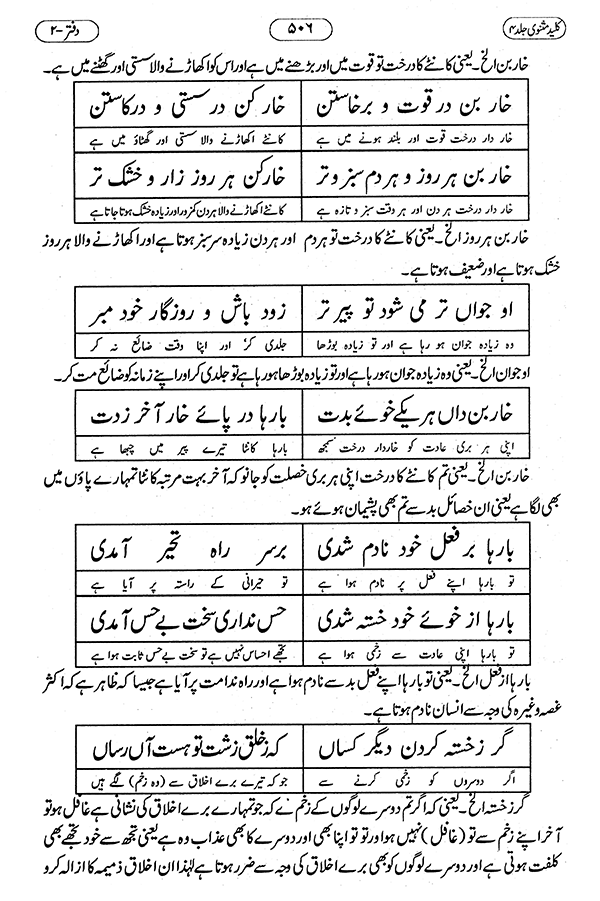 کلید مثنوی جلد ۴
۵۰۶
دفتر -۲
خار بن الخ۔ یعنی کانٹے کا درخت تو قوت میں اور بڑھنے میں ہے اور اس کو اکھاڑنے والا سستی اور گھٹنے میں ہے۔
خار بن در قوت و برخاستن خار کن در سستی و درکاستن
خار دار درخت قوت اور بلند ہونے میں ہے کانٹے اکھاڑنے والا سستی اور گھٹاؤ میں ہے
خار بن ہر روز و ہر دم سبز و تر خار کن ہر روز زار و خشک تر
خار دار درخت ہر دن اور ہر وقت سبز و تازہ ہے کانٹے اکھاڑنے والا ہر دن کمزور اور زیادہ خشک ہوتا جاتا ہے
خار بن ہر روز الخ۔ یعنی کانٹے کا درخت تو ہر دم اور ہر دن زیادہ سرسبز ہوتا ہے اور اکھاڑنے والا ہر روز
خشک ہوتا ہے اور ضعیف ہوتا ہے۔
او جواں تر می شود تو پیر تر زود باش و روزگار خود مبر
وہ زیادہ جوان ہو رہا ہے اور تو زیادہ بوڑھا جلدی کر اور اپنا وقت ضائع نہ کر
او جوان الخ۔ یعنی وہ زیادہ جوان ہو رہا ہے اور تو زیادہ بوڑھا ہو رہا ہے تو جلدی کر اور اپنے زمانہ کو ضائع مت کر۔
خار بن داں ہر یکے خوئے بدت بارہا در پائے خار آخر زدت
اپنی ہر بری عادت کو خاردار درخت سمجھ بارہا کانٹا تیرے پیر میں چبھا ہے
خار بن الخ۔ یعنی تم کانٹے کا درخت اپنی ہر بری خصلت کو جانو کہ آخر بہت مرتبہ کانٹا تمہارے پاؤں میں
بھی لگا ہے یعنی ان خصائل بد سے تم بھی پشیمان ہوئے ہو۔
بارہا بر فعل خود نادم شدی برسر راہ تحیر آمدی
تو بارہا اپنے فعل پر نادم ہوا ہے تو حیرانی کے راستہ پر آیا ہے
بارہا از خوئے خود خستہ شدی حس نداری سخت بے حس آمدی
تو بارہا اپنی عادت سے زخمی ہوا ہے تجھے احساس نہیں ہے تو سخت بے حس ثابت ہوا ہے
بارہا از فعل الخ۔ یعنی تو بارہا اپنے فعل بد سے نادم ہوا ہے اور راہ ندامت پر آیا ہے جیسا کہ ظاہر ہے کہ اکثر
غصہ وغیرہ کی وجہ سے انسان نادم ہوتا ہے۔
گر ز خستہ کردن دیگر کساں کہ ز خلق زشت تو ہست آں رساں
اگر دوسروں کو زخمی کرنے سے جو کہ تیرے برے اخلاق سے (وہ زخم) لگے ہیں
گر ز خستہ الخ۔ یعنی کہ اگر تم دوسرے لوگوں کے زخم سے کہ جو تمہارے برے اخلاق کی نشانی ہے غافل ہو تو
آخر اپنے زخم سے تو (غافل) نہیں ہو اور تو تو اپنا بھی اور دوسرے کا بھی عذاب وہ ہے یعنی تجھ سے خود تجھے بھی
کلفت ہوتی ہے اور دوسرے لوگوں کو بھی برے اخلاق کی وجہ سے ضرر ہوتا ہے لہٰذا ان اخلاق ذمیمہ کا ازالہ کرو